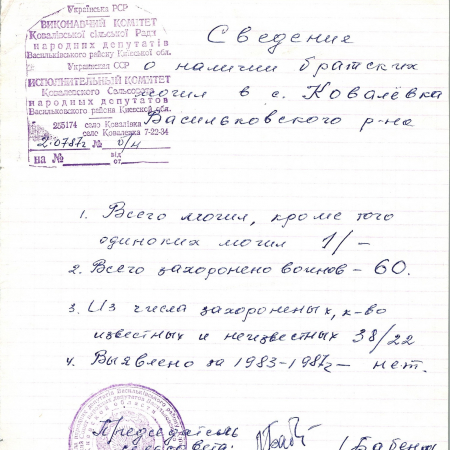 Українська РСР
ВИКОНАВЧИЙ КОМІТЕТ
Ковалівської сільської Ради
народних депутатів
Васильківського району Київської обл.
Украинская ССР
ИСПОЛНИТЕЛЬНЫЙ КОМИТЕТ
Ковалевского Сельсовета
народных депутатов
Васильковского района Киевской обл.
255174 село Ковалівка
село Ковалевка 7-22-34
2.07.87г № б/н
на № від
от
Сведение
о наличии братских
могил в с. Ковалёвка
Васильковского р-на
1. Всего могил, кроме того
одиноких могил 1/–
2. Всего захоронено воинов – 60.
3. Из числа захороненых, к-во
известных и неизвестных 38/22
4. Выявлено за 1983-1987г – нет.
Председатель
сельсовета: